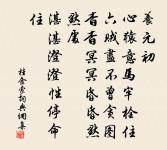 養元初
心猿意馬牢栓住
六賊盡不曾貪圖
杳杳冥冥昏昏默
默處
湛湛澄澄性停命
住
桂窗索詞典網集